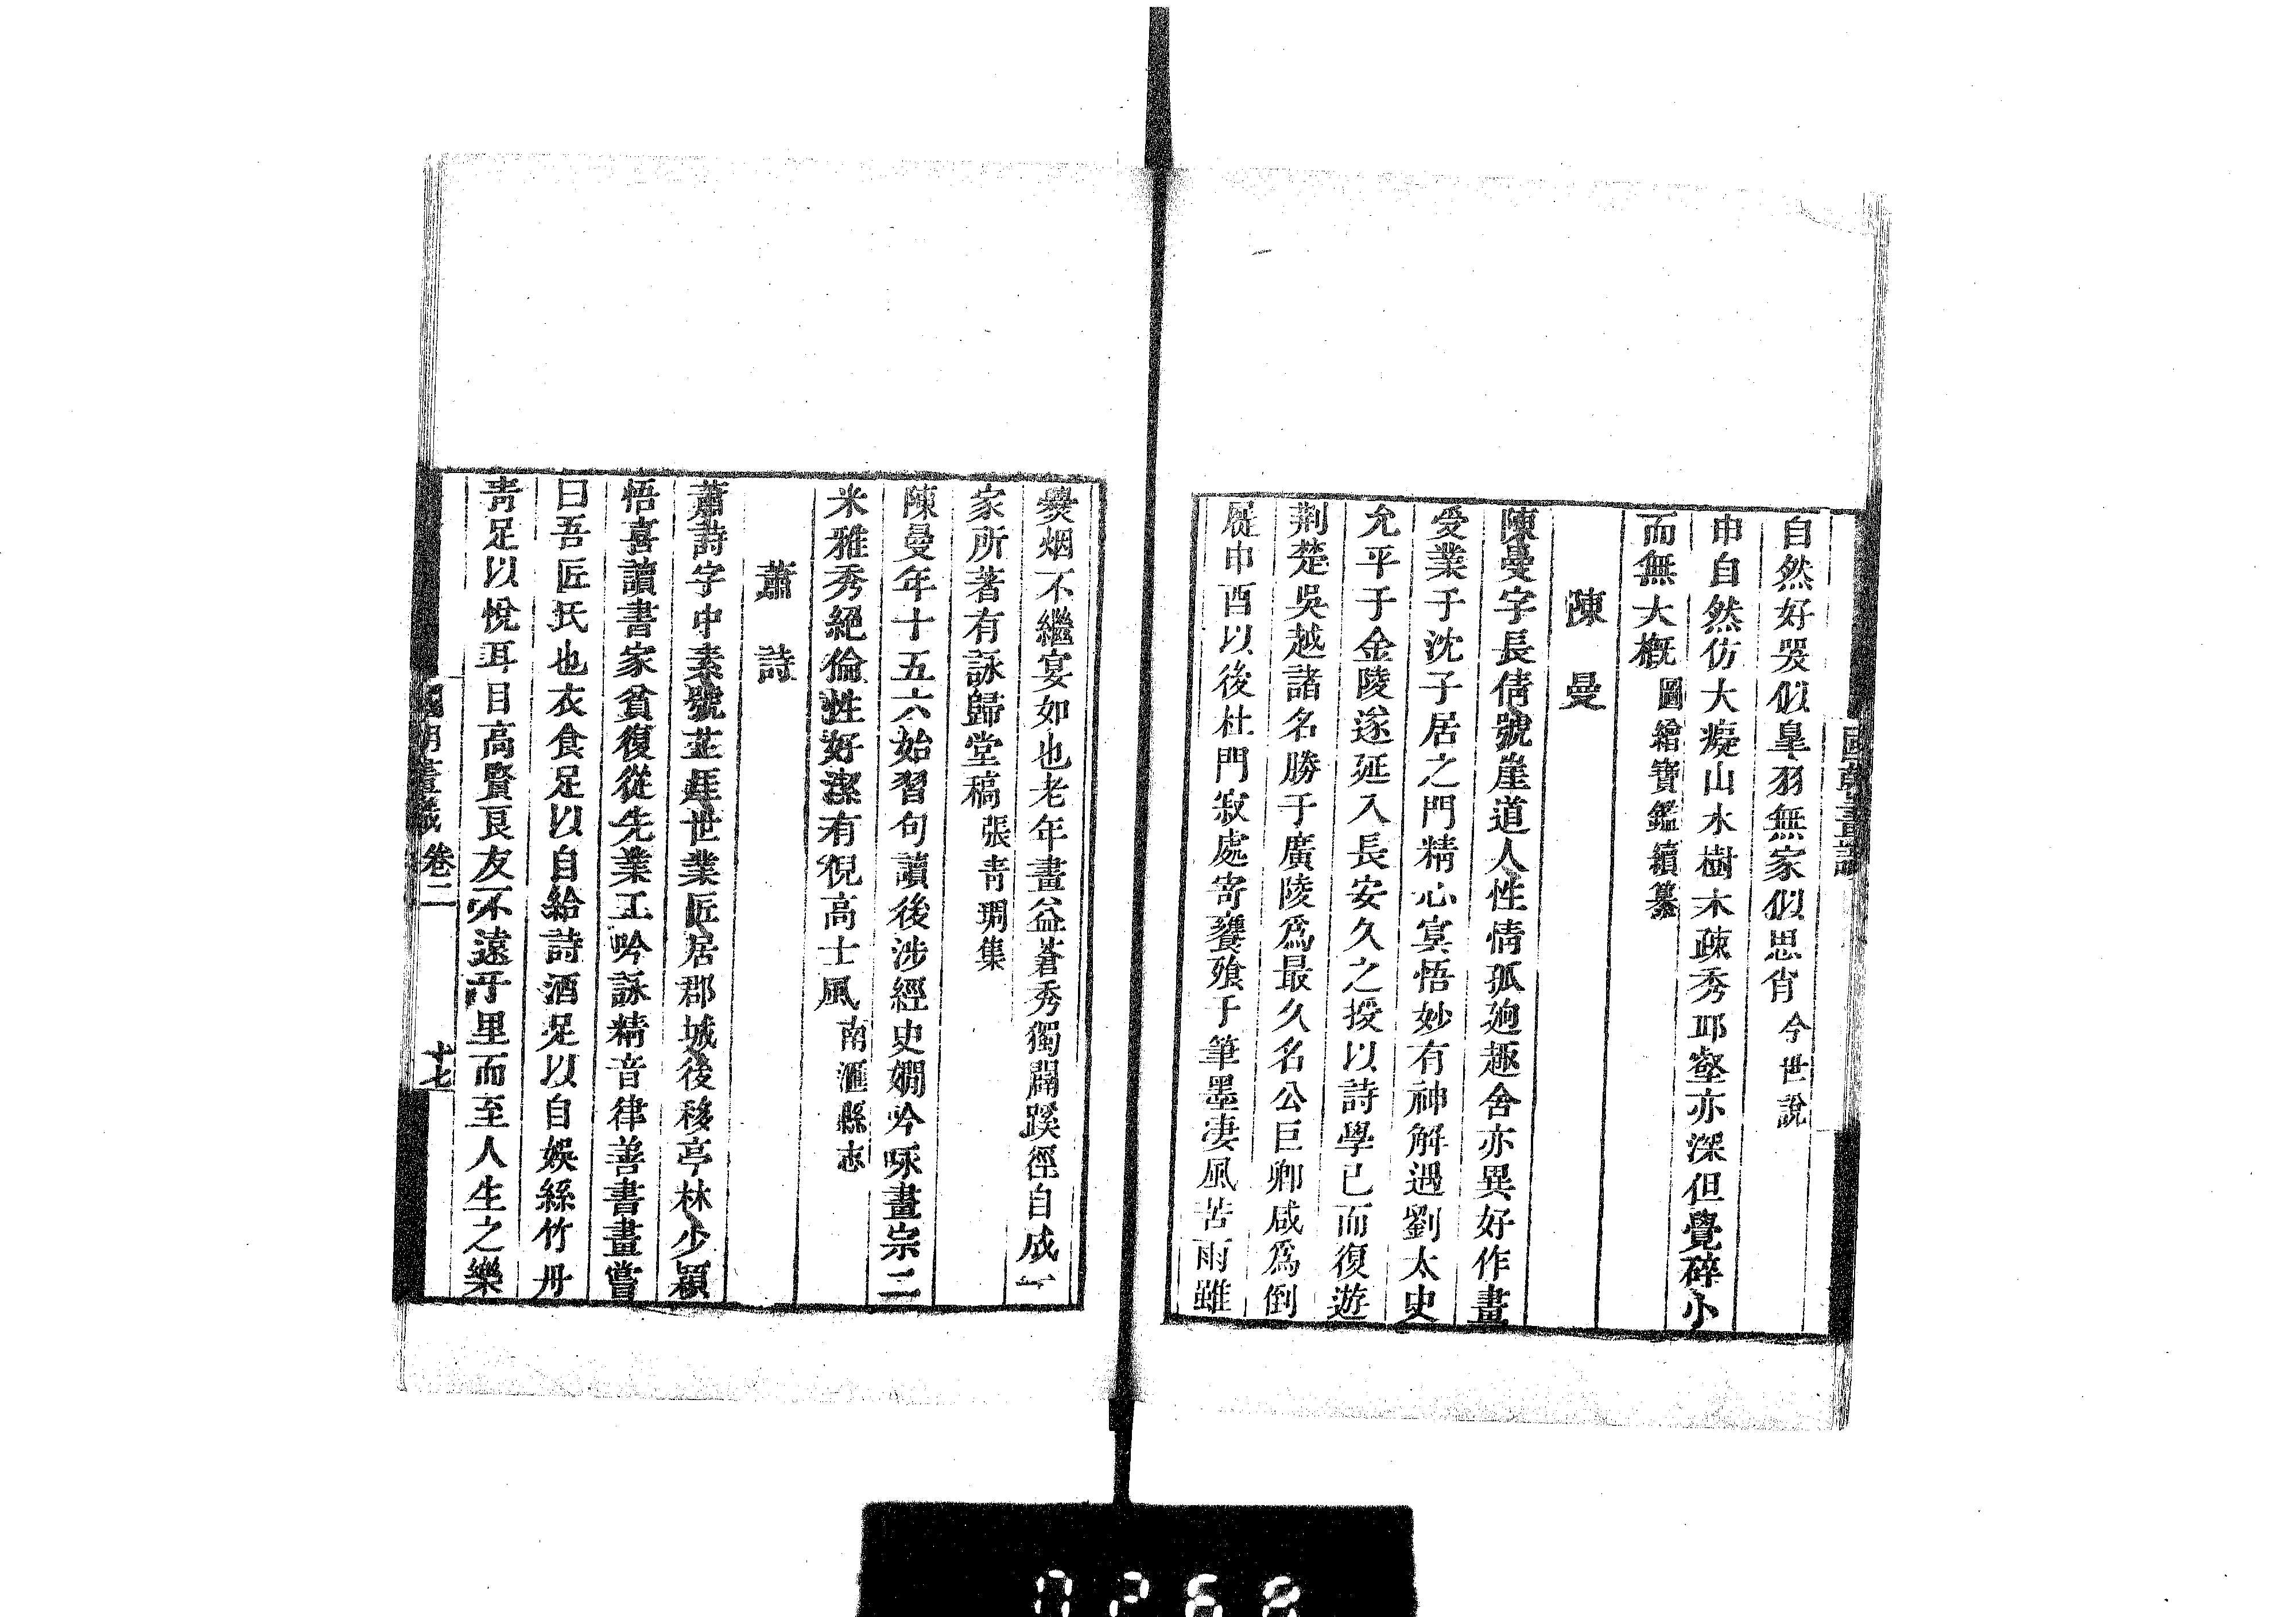 自然好哭似臯羽無家似思肖今世說
申自然仿大癡山水樹木疎秀邱壑亦深但覺碎小
而無大概圖繪寶鑑續纂
陳曼
陳曼字長倩號崖道人性情孤逈趣舍亦異好作畫
受業于沈子居之門精心寘悟妙有神解遇劉太史
允平于金陵遂延入長安久之授以詩學已而復遊
荆楚吳越諸名勝于廣陵爲最久名公巨卿咸爲倒
屣申酉以後杜門寂處寄饔飱于筆墨凄風苦雨雖
爨烟不繼宴如也老年畫益蒼秀獨闢蹊徑自成一
家所著有詠歸堂稿張青琱集
陳曼年十五六始習句讀後涉經史嫺吟咏畫宗二
米雅秀絕倫性好潔有倪高士風南滙縣志
蕭詩
蕭詩字中素號芷厓世業匠居郡城後移亭林少穎
悟喜讀書家貧復從先業工吟詠精音律善書畫嘗
曰吾匠氏也衣食足以自給詩酒足以自娛絲竹丹
靑足以悅耳目高賢良友不遠千里而至人生之樂
國朝畫識 卷二 十七
0268